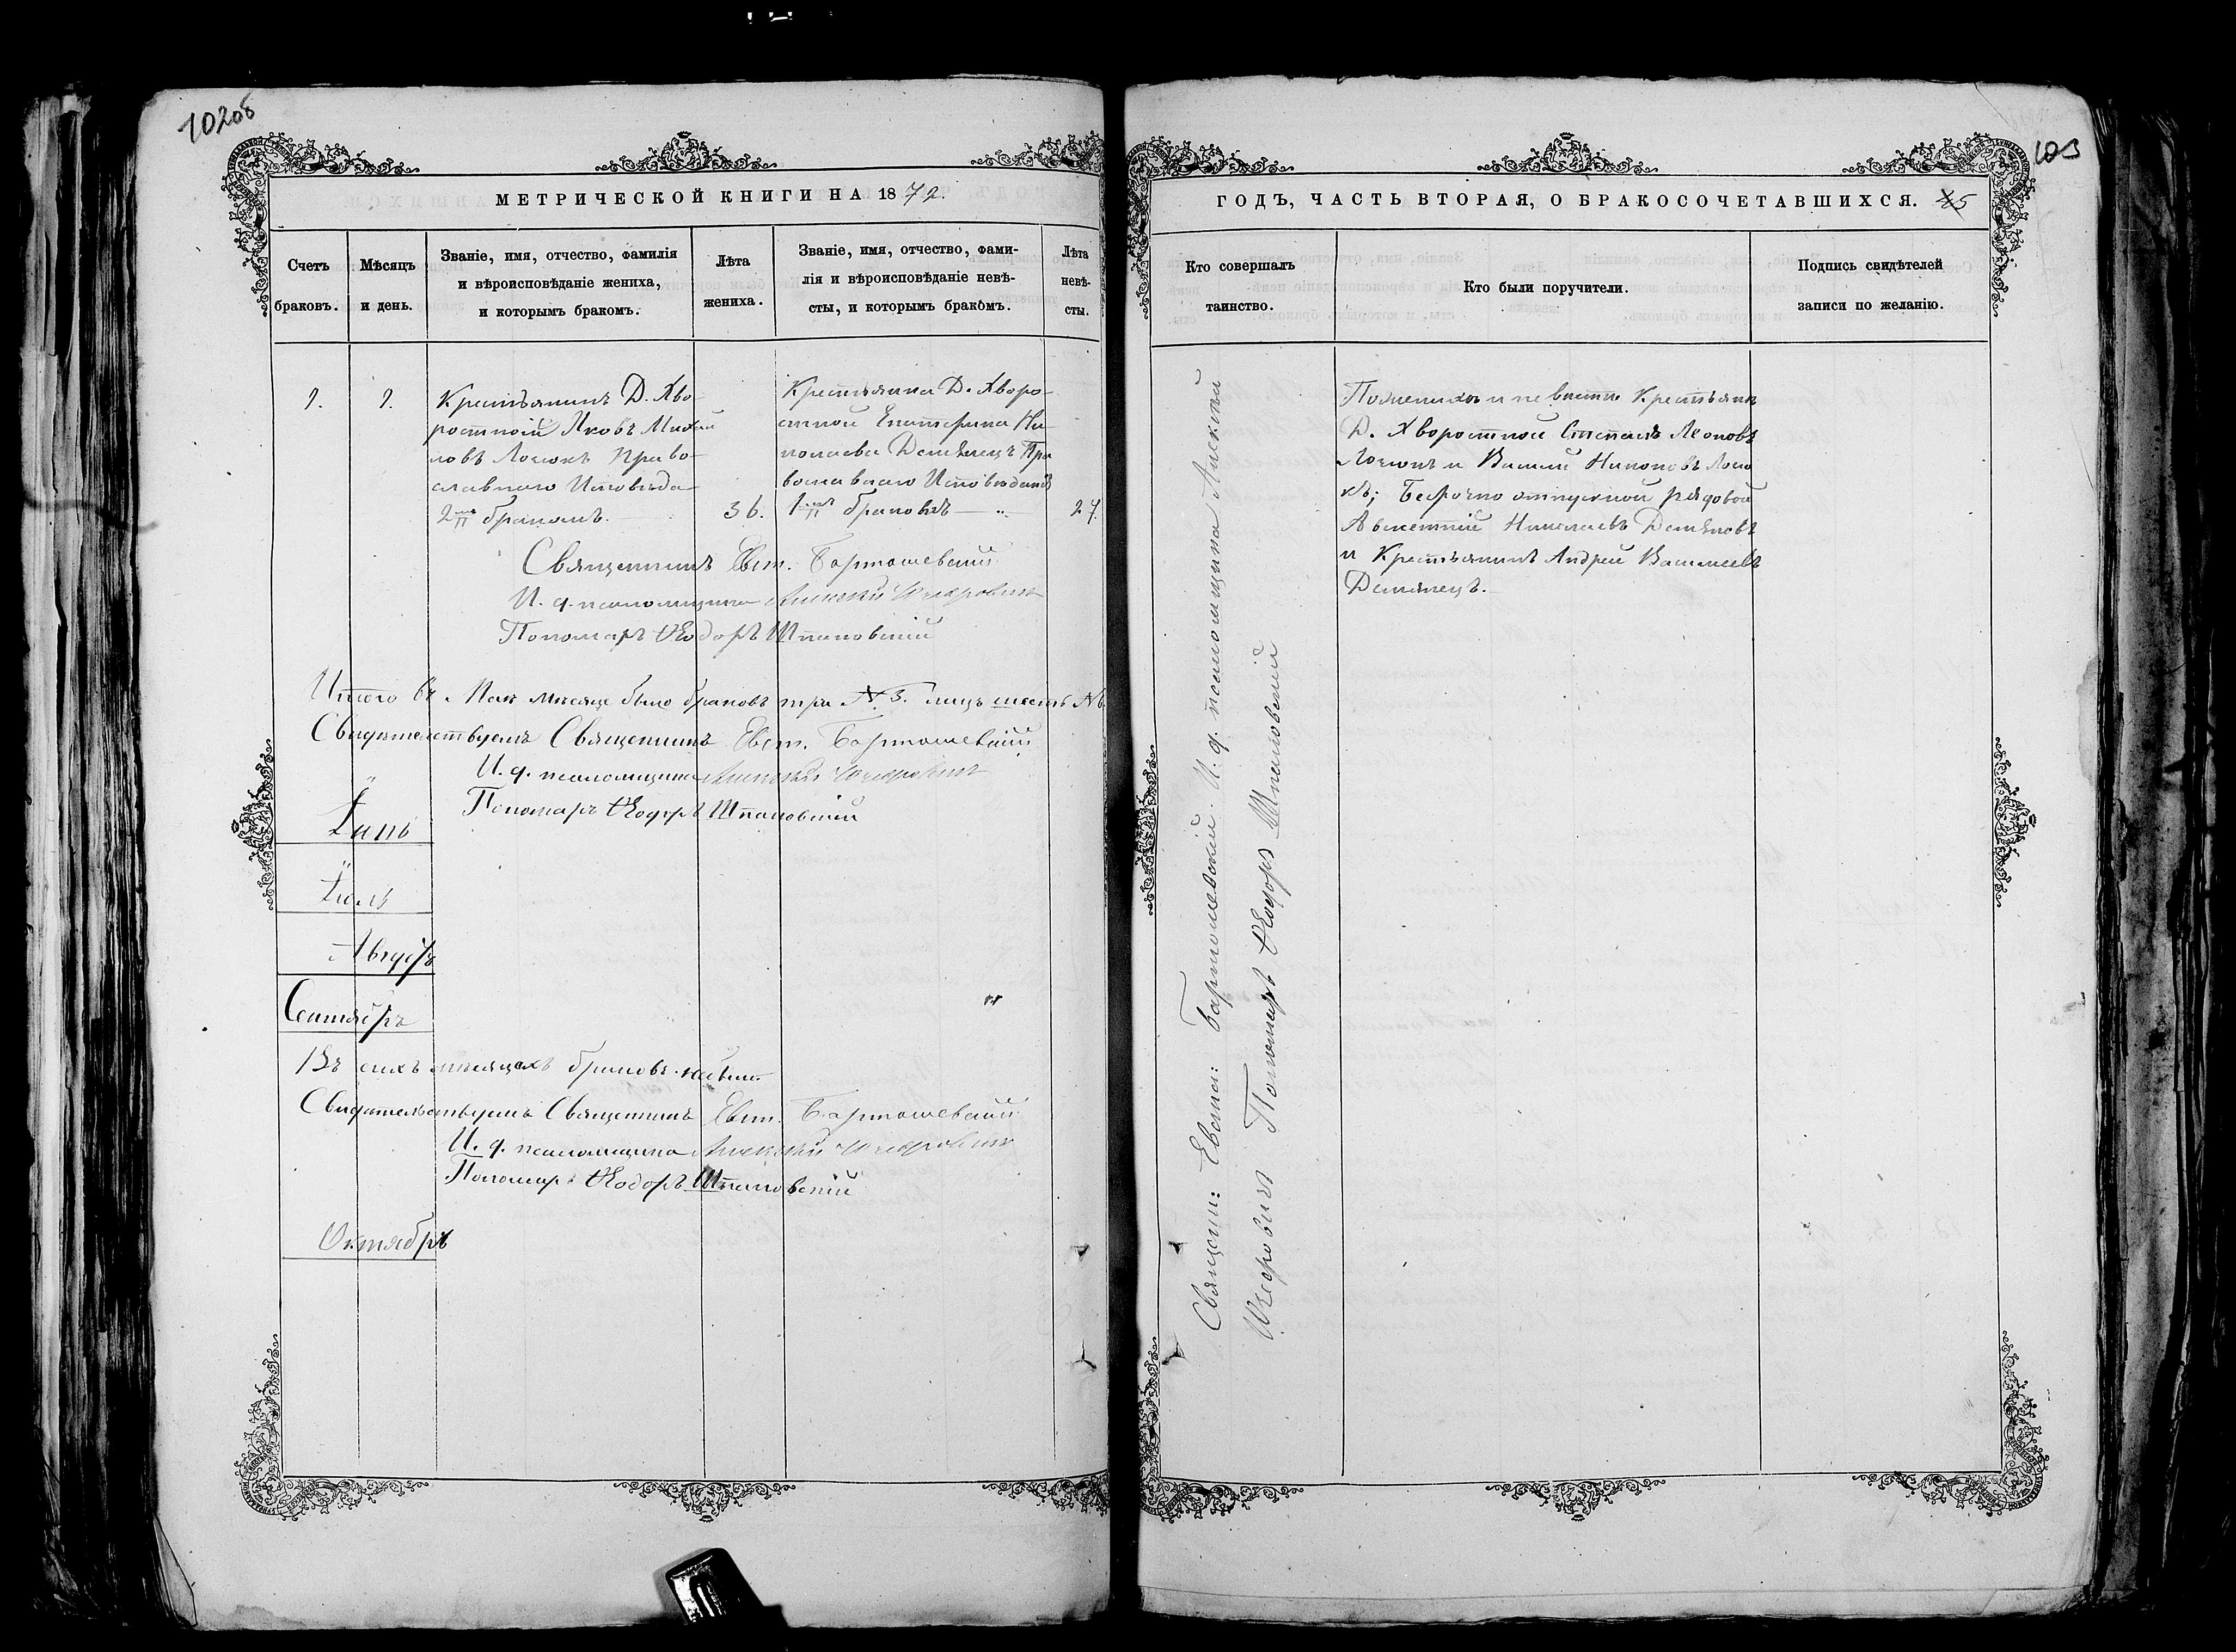 102об
МЕТРИЧЕСКОЙ КНИГИ НА 1872.
Счетъ браковъ.
Мѣсяцъ и день.
Званіе, имя, отчество, фамилія
и вѣроисповѣданіе жениха,
и которымъ бракомъ.
Лѣта
жениха.
Званіе, имя, отчество, фами-
лія и вѣроисповѣданіе невѣ-
сты, и которымъ бракомъ.
Лѣта
невѣ-
сты.
Крестьянинъ Д. Хво-
ростной Яковъ Михай
ловъ Право-
славнаго Исповѣда
2мъ бракомъ.
36.
Крестьянка Д. Хворо-
стной Екатерина Ни-
колаева Демянецъ Пра
вославнаго Исповѣданія
1мъ бракомъ
27.
Священникъ Евст. Бартошевскій
И. д. псаломщика Алексѣй
Пономаръ Ѳеодоръ Шпаковскій
Итого въ Маѣ мѣсяцѣ было браковъ три № 3. лицъ шесть № 6
Свидѣтельствуемъ Священникъ Евст. Бартошевскій
И. д. псаломщика Алексѣй
Пономаръ Ѳеодоръ Шпаковскій
Іюнь
Іюль
Августъ
Сентябрь
Въ сихъ мѣсяцахъ браковъ небыло
Свидѣтельствуемъ Священникъ Евст. Бартошевскій
И. д. псаломщика Алексѣй
Пономаръ Ѳеодоръ Шпаковскій
Октябрь
103
ГОДЪ, ЧАСТЬ ВТОРАЯ, О БРАКОСОЧЕТАВШИХСЯ.
Кто совершалъ
таинство.
Кто были поручители.
Подпись свидѣтелей
записи по желанію.
Священ: Евста: Бартошевскій. И. д. псаломщика Алексѣй
Пономаръ Ѳеодоръ Шпаковскій
По женихѣ и невѣстѣ Крестьяне
Д. Хворостной Степанъ Леоновъ
и Василій Никоновъ
Безсрочно отпускной рядовой
Николаевъ
и Крестьянинъ Андрей Василіевъ
Демянецъ.